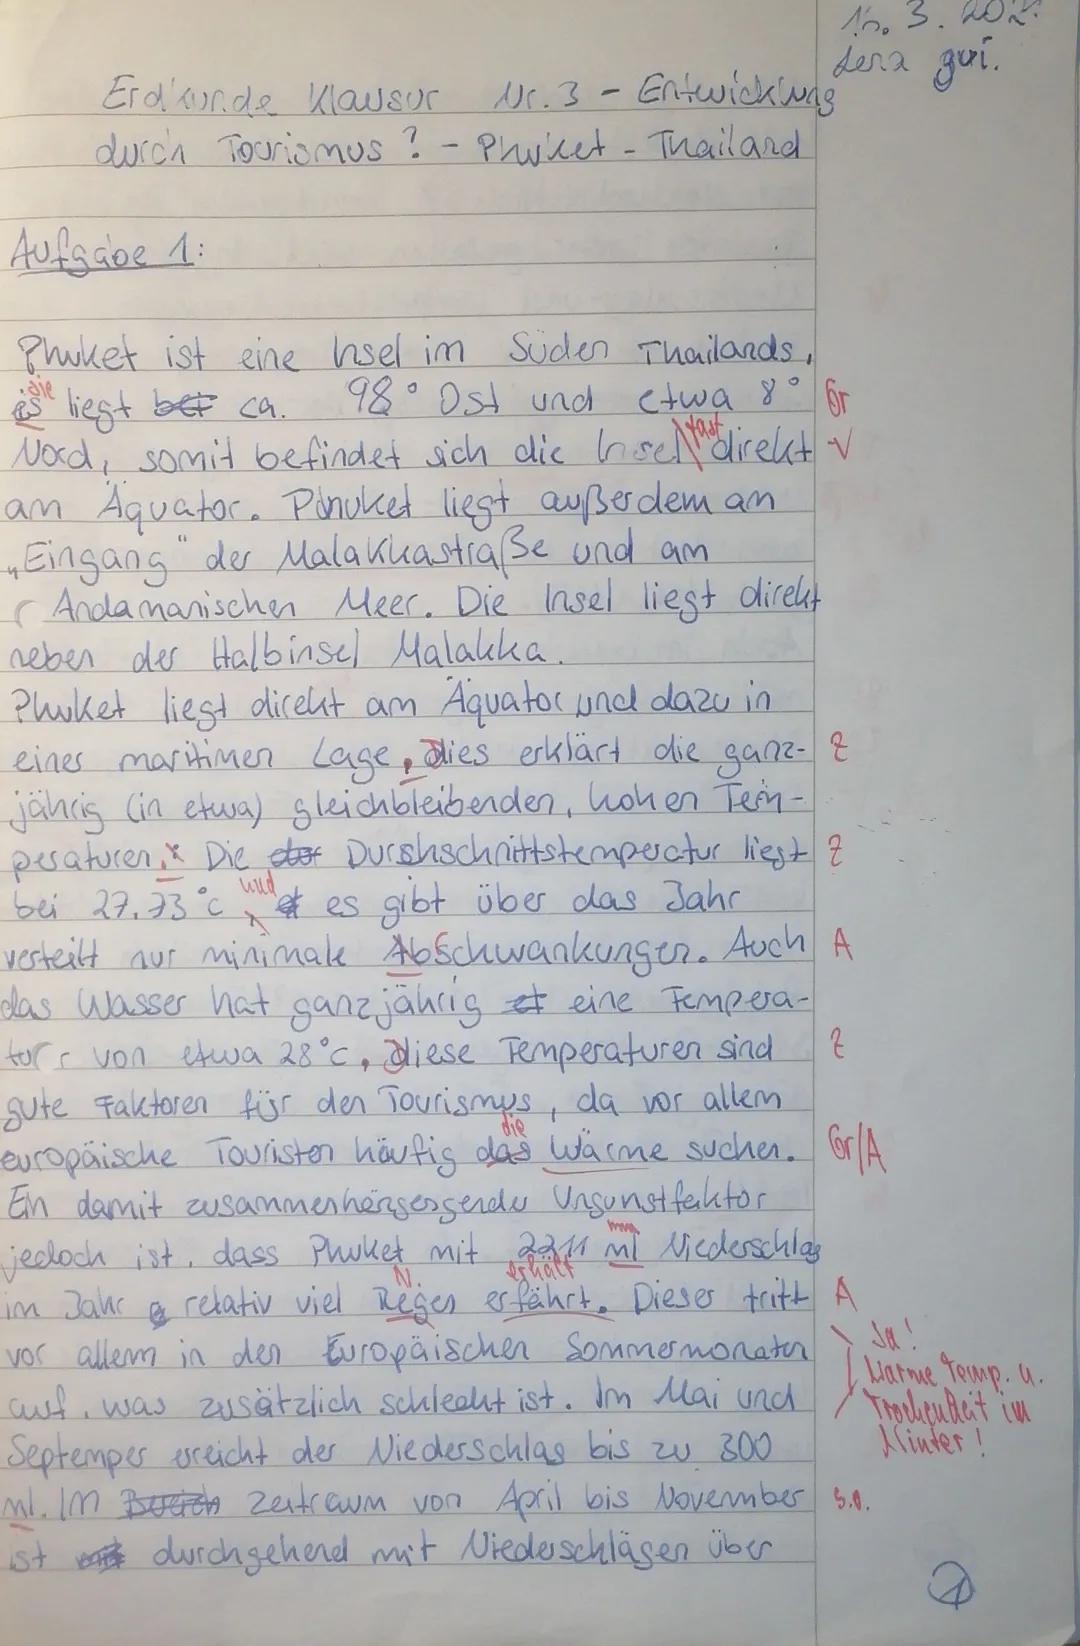 Erdkunde Klausur Nr. 3 - Entwicklung
durch Tourismus? - Phuket - Thailand
Aufgabe 1:
Phuket ist eine Insel im Süden Thailands,
es sie liegt bei ca. 98° Ost und etwa 8° Gr
Nord, somit befindet sich die Insel fast direkt √
am Äquator. Phuket liegt außerdem am
„Eingang" der Malakkastraße und am
Andamanischen Meer. Die Insel liegt direkt
neben der Halbinsel Malakka.
Phuket liegt direkt am Äquator und dazu in
einer maritimen Lage, dies erklärt die ganz- Z
jährig (in etwa) gleichbleibenden, hohen Tem-
peraturen. Die Durshschnittstemperatur liegt Z
bei 27,73 °C und es gibt über das Jahr
verteilt nur minimale AbSchwankungen. Auch A
das Wasser hat ganzjährig eine Tempera-
tur von etwa 28°C, diese Temperaturen sind Z
gute Faktoren für den Tourismus, da vor allem
europäische Touristen häufig das die Wärme suchen. Gr/A
Ein damit zusammenhängender Ungunstfaktor
jedoch ist, dass Phuket mit 2211 ml mm Niederschlag
im Jahr relativ viel Regen N. erfährt erhält. Dieser tritt A
vor allem in den Europäischen Sommermonaten Ja!
auf, was zusätzlich schlecht ist. Im Mai und Warme Temp. u.
Trockenheit im
September erreicht der Niederschlag bis zu 300 Winter!
ml. Im Bereich Zeitraum von April bis November s.o.
ist durchgehend mit Niederschlägen über
1